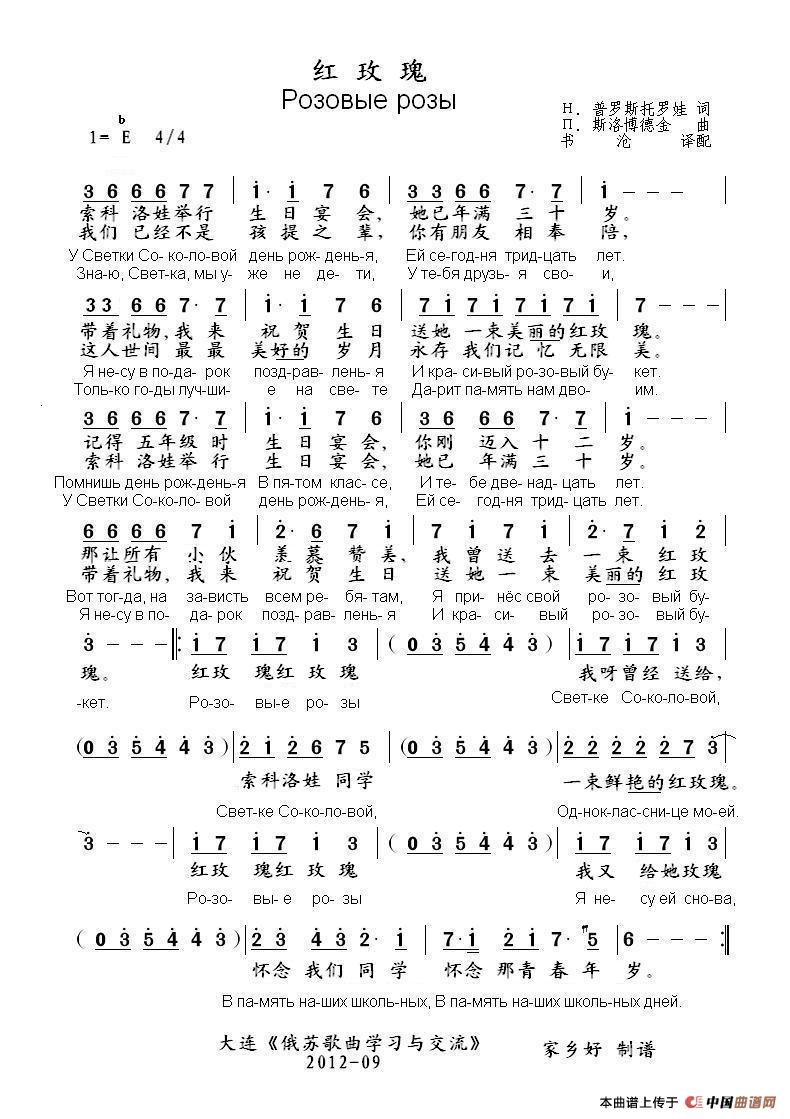 红 玫 瑰
Розовые розы
Н. 普罗斯托罗娃 词
П. 斯洛博德金 曲
书 沧 译配
1= ᵇE 4/4
3 6 6 6 6 7 7 | i· i 7 6 | 3 3 6 6 7· 7 | i – – – |
索科 洛娃举行 生 日 宴 会, 她已年满 三 十 岁。
我们 已经不是 孩 提 之 辈, 你有朋友 相 奉 陪,
У Светки Со- ко-ло-вой день рож- день-я, Ей се-год-ня трид-цать лет.
Зна-ю, Свет-ка, мы у- же не де- ти, У те-бя друзь-я сво- и,
3 3 6 6 7· 7 | i· i 7 6 | 7 i 7 i 7 i 7 i | 7 – – – |
带着礼物,我 来 祝 贺 生 日 送她 一束美丽的红玫 瑰。
这人世间 最 最 美好的 岁 月 永存 我们记 忆 无限 美。
Я не-су в по-да- рок позд-рав-лень-я И кра- си-вый ро-зо-вый бу- кет.
Толь-ко го-ды луч-ши- е на све- те Да-рит па-мять нам дво- им.
3 6 6 6 6 7· 7 | i· i 7 6 | 3 6 6 6 6 7· 7 | i – – – |
记得 五年级 时 生 日 宴 会, 你刚 迈入 十 二 岁。
索科 洛娃举行 生 日 宴 会, 她已 年满 三 十 岁。
Помнишь день рож-день-я В пя-том клас- се, И те- бе две-над- цать лет.
У Светки Со-ко-ло- вой день рож-день-я, Ей се- год-ня трид-цать лет.
6 6 6 6 7 i | 2· 6 7 i | 7 i 7 i | 2· 7 i 2 |
那让所有 小 伙 羡 慕 赞 美, 我 曾 送 去 一 束 红 玫
带着礼物,我 来 祝 贺 生 日 送 她 一 束 美丽的 红 玫
Вот тог-да, на за-висть всем ре- бя-там, Я при- нёс свой ро- зо- вый бу-
Я не-су в по- да-рок позд- рав-лень-я И кра- си- вый ро- зо- вый бу-
3 – – – ‖: i 7 i 7 i 3 | ( 0 3 5 4 4 3 ) | i 7 i 7 i 3 |
瑰。 红玫 瑰红 玫 瑰 我呀曾经 送给,
-кет. Ро-зо- вы-е ро- зы Свет-ке Со-ко-ло-вой,
( 0 3 5 4 4 3 ) | 2 i 2 6 7 5 | ( 0 3 5 4 4 3 ) | 2 2 2 2 2 7 3 |
索科洛娃 同学 一束鲜艳的红玫瑰。
Свет-ке Со-ко-ло-вой, Од-нок-лас-сни-це мо-ей.
3 – – – | i 7 i 7 i 3 | ( 0 3 5 4 4 3 ) | i 7 i 7 i 3 |
红玫 瑰红 玫 瑰 我又 给她玫瑰
Ро-зо- вы- е ро- зы Я не- су ей сно-ва,
( 0 3 5 4 4 3 ) | 2 3 4 3 2· i | 7· i 2 i 7· 5 | 6 – – – :‖
怀念 我们 同 学 怀念 那青 春 年 岁。
В па-мять на-ших школь-ных, В па-мять на-ших школь-ных дней.
大连《俄苏歌曲学习与交流》
2012-09
家乡好 制谱
本曲谱上传于 中国曲谱网